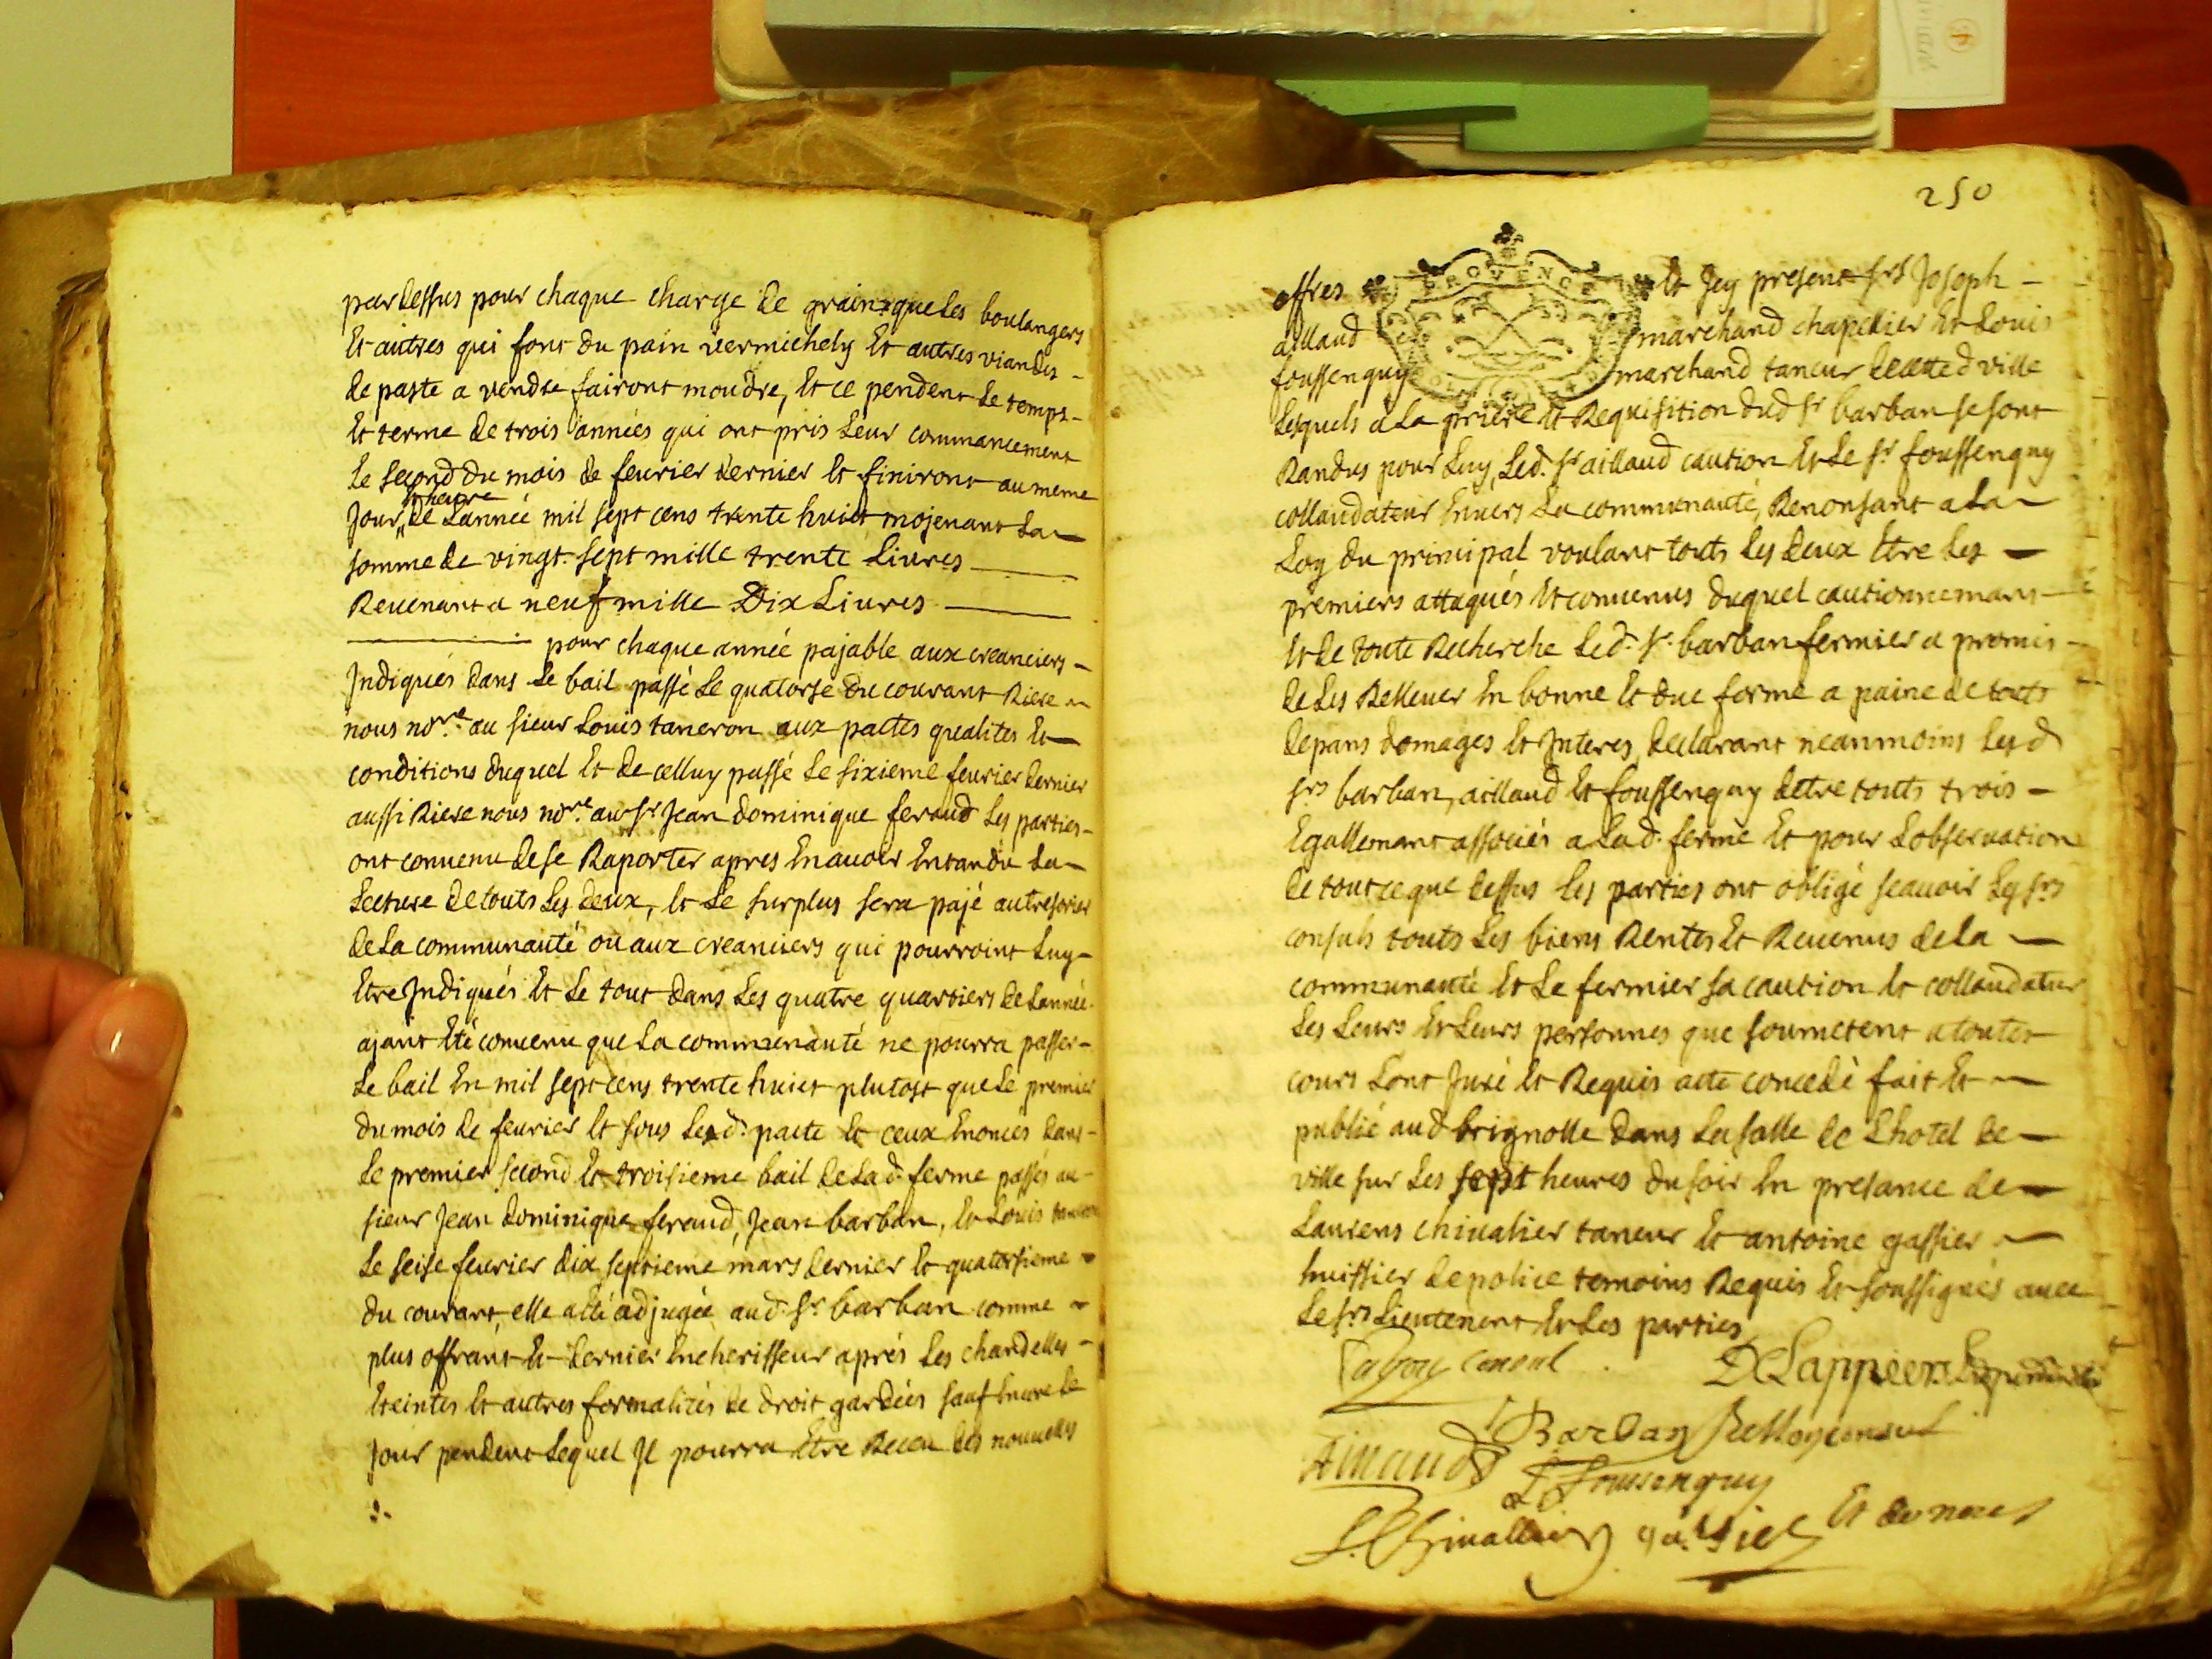 par dessus pour chaque charge de grains que les boulangers
Et autres qui font du pain vermichely Et autres viandes -
de paste a vendre fairont moudre, Et ce pendent le temps -
Et terme de trois années qui ont pris leur commancement
le second du mois de fevrier dernier Et finiront au meme
Et heure
jour de L'année mil sept cens trente huict mojenant la
somme de vingt sept mille trente Livres
Revenant a neuf mille Dix Livres
pour chaque année pajable aux creanciers -
Indiqués dans le bail passé le quatorse du courant Riere
nous nore. au sieur Louis taneron aux pactes qualites Et
conditions duquel Et de celluy passé le sixieme fevrier dernier
aussi Riere nous nore. au sr Jean dominique feraud les parties -
ont convenu de se Raporter apres En avoir Entandu la
Lecture de touts les deux, Et le surplus sera pajé au tresorier
de la communauté ou aux creanciers qui pourroint luy -
Etre Indiqués Et le tout dans les quatre quartiers de L'année
ajant Eté convenu que la communauté ne pourra passer -
le bail En mil sept cens trente huict plutost que le premier
du mois de fevrier Et sous lesd. pacte Et ceux Enoncés dans -
le premier second Et troisieme bail de lad. ferme passés au -
sieur Jean dominique feraud, Jean barban, Et Louis taneron
le seise fevrier dix septieme mars dernier Et quatorsieme
du courant, elle a Eté adjugée aud. sr barban comme
plus offrant Et dernier Encherisseur aprés les chandelles -
Eteintes Et autres formalités de droit gardées sauf heure de
jour pendent lequel Il pourra Etre Receu des nouvelles
250
offres Et Icy present srs Joseph -
PROVENCE
aillaud marchand chapellier Et Louis
foussenquy marchand taneur de cette d ville
lesquels a la priere Et Requisition dud sr barban se sont
Randus pour luy, led. sr aillaud caution Et le sr foussenquy
collaudateur Envers la communauté, Renonsant a la
Loy du principal voulant touts les deux Etre les
premiers attaqués Et convenus duquel cautionnemant
Et de toute Recherche led. sr. barban fermier a promis -
de les Rellever En bonne Et due forme a paine de touts
depans domages Et Interes, declarant neanmoins lesd
srs barban, aillaud Et foussenquy detre touts trois -
Egallemant associés a lad. ferme Et pour Lobservation
de tout ce que dessus les parties ont obligé scavoir les srs
consuls touts les biens Rentes Et Revenus de la
communauté Et le fermier sa caution Et collaudateur
les leurs Et leurs personnes que soumetent a toutes
cours Lont Juré Et Requis acte concedé fait Et
publié aud brignolle dans la salle de Lhotel de
ville sur les sept heures du soir En presance de
Laurens chivalier taneur Et antoine gassier
huissier de police temoins Requis Et soussignés avec
le srs Lieutenent Et les parties
consul
J Barban
consul
Aillaud
L Foussenquy
L. Chivallier gassier Et de nous